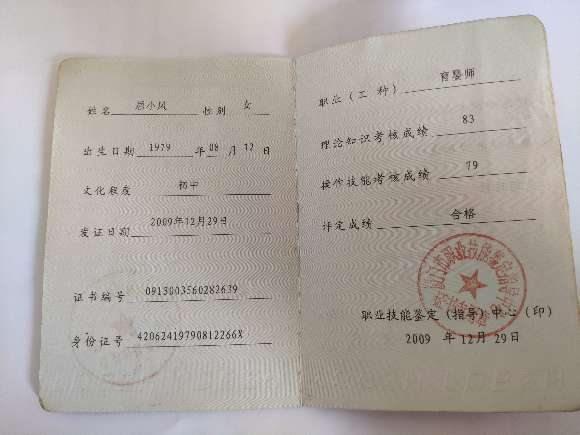 姓名 小凤 性别 女
出生日期 1979 年 08 月 12 日
文化程度 初中
发证日期 2009年12月29日
证书编号 0913003560282639
身份证号 42062419790812266X
职业（工 种） 育婴师
理论知识考核成绩 83
操作技能考核成绩 79
评定成绩 合格
职业技能鉴定（指导）中心（印）
2009 年 12月 29日